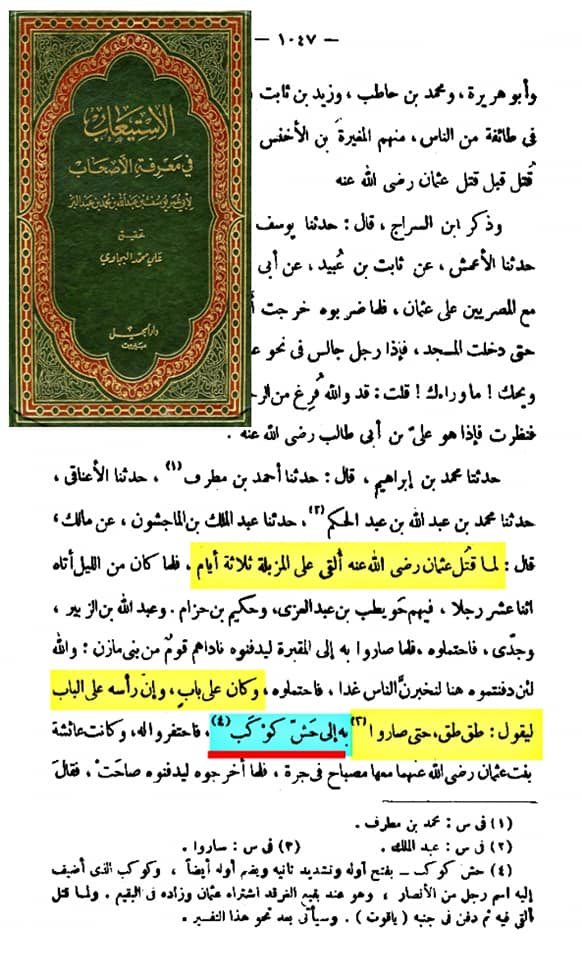 — ١٠٤٧ —
الاستيعاب
في معرفة الأصحاب
لأبي عمر يوسف بن عبد الله بن محمد بن عبد البر
تحقيق
علي محمد البجاوي
دار الجيل
بيروت
وأبو هريرة ، ومحمد بن حاطب ، وزيد بن ثابت
فى طائفة من الناس ، منهم المغيرة بن الأخنس
قُتل قبل قتل عثمان رضى الله عنه
وذكر ابن السراج ، قال : حدثنا يوسف
حدثنا الأعمش ، عن ثابت بن عُبيد ، عن أبى
مع المصريين على عثمان ، فلما ضربوه خرجت
حتى دخلت المسجد ، فإذا رجل جالس فى نحو
ويحك ! ما وراءك ! قلت : قد والله فُرغ من
فنظرت فإذا هو علىّ بن أبى طالب رضى الله عنه .
حدثنا محمد بن إبراهيم ، قال : حدثنا أحمد بن مطرف (١) ، حدثنا الأعناقى ،
حدثنا محمد بن عبد الله بن عبد الحكم (٢) ، حدثنا عبد الملك بن الماجشون ، عن مالك ،
قال : لما قُتل عثمان رضى الله عنه ألقى على المزبلة ثلاثة أيام ، فلما كان من الليل أتاه
اثنا عشر رجلا ، فيهم حَويطب بن عبد العزى ، وحكيم بن حزام . وعبد الله بن الزبير ،
وجدّى ، فاحتملوه ، فلما صاروا به إلى المقبرة ليدفنوه ناداهم قومٌ من بنى مازن : والله
لئن دفنتموه هنا لنخبرنَّ الناس غدا ، فاحتملوه ، وكان على بابٍ ، وإنّ رأسه على الباب
ليقول : طق طق ، حتى صاروا (٣) به إلى حَشّ كَوْكَب (٤) ، فاحتفروا له ، وكانت عائشة
بنت عثمان رضى الله عنهما معها مصباح فى جرة ، فلما أخرجوه ليدفنوه صاحَتْ ، فقالَ
(١) فى س : محمد بن مطرف .
(٢) فى س : عبد الملك . (٣) فى س : ساروا .
(٤) حش كوكب – بفتح أوله وتشديد ثانيه ويضم أوله أيضاً ، وكوكب الذى أضيف
إليه اسم رجل من الأنصار ، وهو عند بقيع الغرقد اشتراه عثمان وزاده فى البقيع . ولما قتل
ألقى فيه ثم دفن فى جنبه ( ياقوت ) . وسيأتى بعد نحو هذا التفسير .